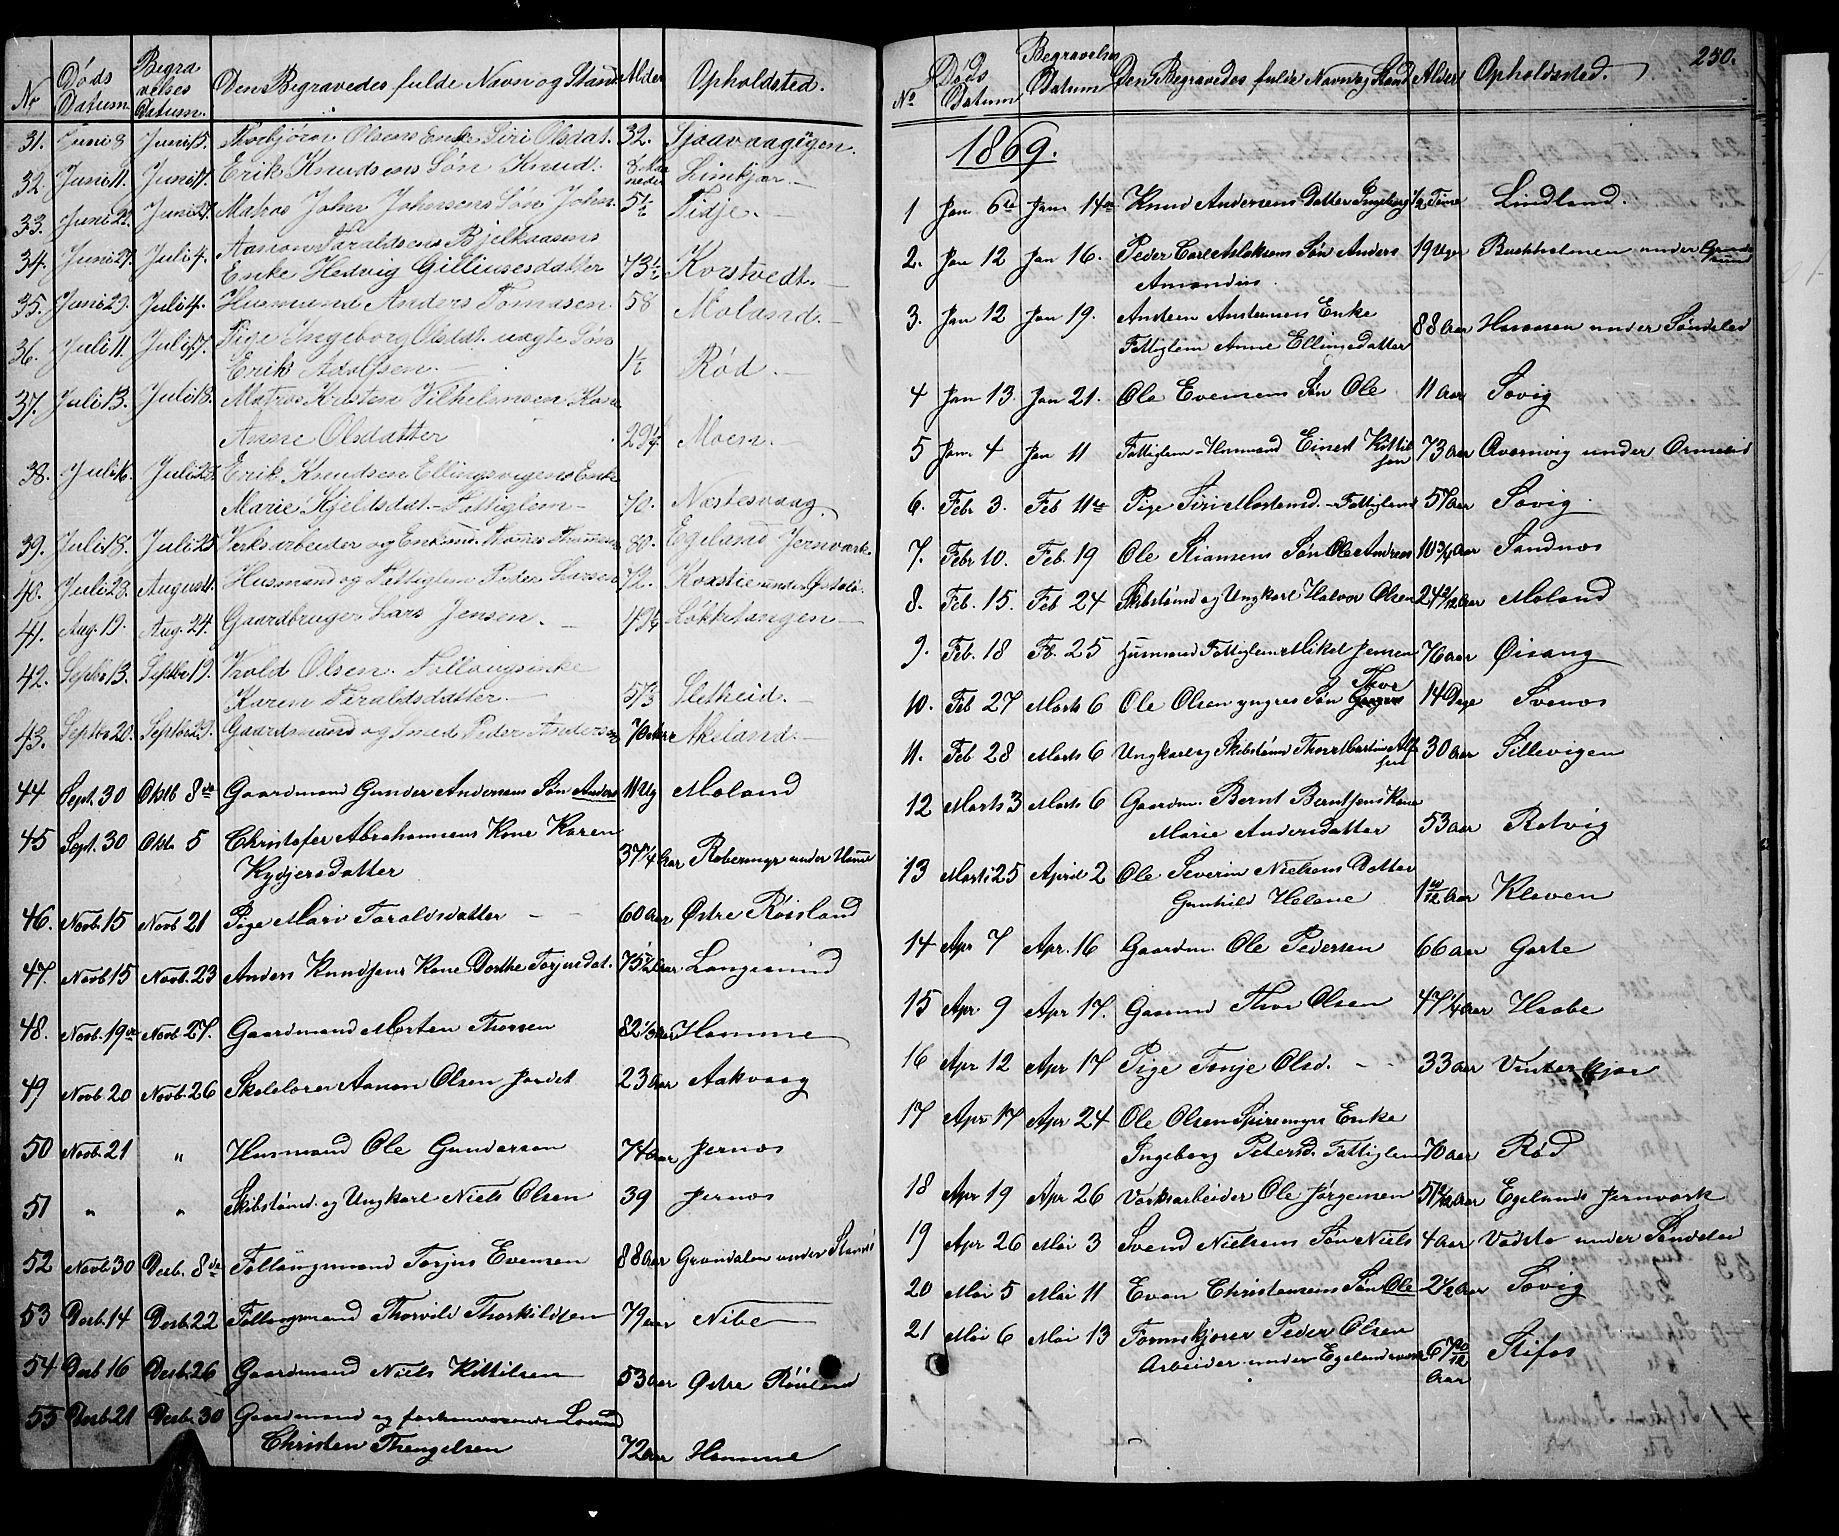 No Døds Datum. Begravelses Datum. Den Begravedes fulde Navn og Stand Alder Opholdsted.
31. Juni 9 Juni 15. Thorbjörn Olsens Enke Siri Olsdat. 32.
32. Juni 11. Juni 17. Erik Knudsens Søn Knud. 8 Maaneder Limkjær.
33. Juni 22. Juni 27. Matros John Johnsens Søn John 5½ Fidje.
34. Juni 27. Juli 4. Aanon Taraldsens
Enke Hedvig Gilliusesdatter 73½ Korstvedt.
35. Juni 29. Juli 4. Husmand Anders Tomasen. 58 Moland.
36. Juli 11. Juli 17. Pige Ingeborg Olsdt. uægte Søn
Erik Adolfsen. 1½ Rød.
37. Juli 13. Juli 18. Matros Kristen Vilhelmsen Kone
Anne Olsdatter 29¼ Moen.
38. Juli 16. Juli 25. Erik Knudsen Ellingsvigens Enke
Marie Kjeldsdat. Fattiglem 70. Næstesvaag.
39. Juli 18. Juli 25 Værksarbeider og Enkmd. 80. Egeland Jernværk.
40. Juli 28. August 4. Husmand og Fattiglem Peder Larsen 72.
41. Aug. 19. Aug. 24. Gaardbruger Lars Jensen. Løkketangen
42. Septbr 13. Septbr 19. Kold Olsen.
Karen Teraldsdatter. 57 3 Sletheid.
43. Septbr 20. Septbr 29. Gaardmand og Smed Peder Andersen 70 Akeland.
44 Sept. 30 Oktb 8de Gaardmand Gunder Andersens Søn Anders 11 Ug Moland
45 Sept. 30 Oktb 5 Christofer Abrahamsens Kone Karen
Kydjersdatter 37¼ Aar Robermyr under Hamme
46. Novb. 15 Novb 21 Pige Mari Taraldsdatter 60 Aar Østre Røisland
47. Novb 15 Novb. 23 Anders Knudsens Kone Dorthe Torjusdat. 75½ Aar Langsmind
48. Novb. 19de Novb. 27. Gaardmand Morten Thorsen 82⅓ Aar Hamme
49 Novb. 20 Novb. 26 Skolelærer Aanon Olsen Jordet 23 Aar Aakvaag
50 Novb. 21 " Husmand Ole Gundersen 74 Aar Jernæs
51 " " Skibstømd. og Ungkarl Niels Olsen 39 Jernæs
52 Novb. 30 Decb. 8de Føllaugsmand Torjus Evensen 88 Aar Grøndalen under
53 Decb. 14 Decb. 22 Føllaugsmand Thorvild Thorkildsen 79 aar Nibe
54 Decb 16 Decb. 26 Gaardmand Niels Kittilsen 53 aar Østre Røisland
55 Decb. 21 Decb. 30 Gaardmand og forhenværende
Christen Thengelsen 72 aar Hamme
250.
No Døds Datum Begravelses Datum Den Begravedes fulde Navn og Stand Alder Opholdssted.
1869.
1 Jan. 6te Jan. 14de Knud Andersens Datter Ingeborg ½ Time Lindland.
2. Jan 12 Jan 16. Peder Carl Aslaksens Søn Anders 19 Uger Buskholmen under
Amandus.
3. Jan 12 Jan 19. Enke
Fattiglem Anne Ellingsdatter 88 Aar under Søndeled
4 Jan 13 Jan 21. Ole Evensens Søn Ole 11 Aar Søvig
5 Jan. 4 Jan 11 Fattiglem Husmand Einert Kittil
sen 73 Aar Avernvig under Ormeid
6. Febr 3. Feb 11te Pige Siri Mortensd. Fattiglem 57 Aar Søvig
7. Febr 10. Feb. 19 Ole Stiansens Søn Ole Andreas 10¾ Aar Sandnæs
8. Feb. 15. Feb 24 Skibstømd og Ungkarl Halvor Olsen 24 Aar Moland
9. Feb. 18 Fb. 25 Husmand Fattiglem Mikel Jensen 76 aar Øisang
10. Feb 27 Marts 6 Ole Olsen yngres Søn Thor 14 Dage Svenæs
11. Feb 28 Marts 6 Ungkarl og Skibstømd Thore Martin Alf
sen 30 Aar Sillevigen
12 Marts 3 Marts 6 Gaardm. Bernt Berntsens Kone
Marie Andersdatter 53 Aar Rødvig
13 Marts 25 April 2 Ole Severin Nielsens Datter
Gunhild Helene 1 Aar Kleven
14 Apr 7 Apr. 16 Gaardm. Ole Pedersen 66 Aar Garte
15 Apr. 9 Apr 17. Gaarmd Thor Olsen 47¼ Aar Haabe
16 Apr 12 Apr 17 Pige Tonje Olsd. 33 Aar Vinterkjær
17 Apr 17 Apr 24 Ole Olsen Spiremyrs Enke
Ingeborg Petersd. Fattiglem 70 Aar Rød
18 Apr 19 Apr 26 Værksarbeider Ole Jørgensen 51 Aar Egelands Jernværk
19 Apr 26 Mai 3 Svend Nielsens Søn Niels 4 Aar Vadsto under Søndeled
20 Mai 5 Mai 11 Even Christensens Søn Ole 2½ Aar Søvig
21 Mai 6 Mai 13 Formskjærer Peder Olsen
Arbeider under Egelandsværk 67 10/12 Aar Stifos